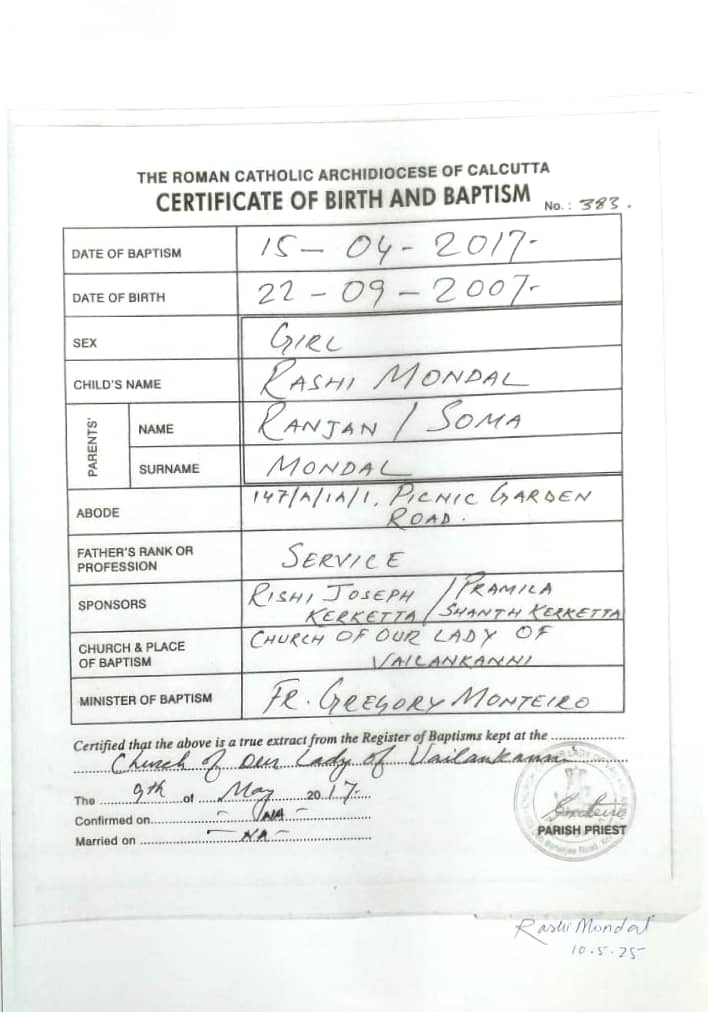 THE ROMAN CATHOLIC ARCHIDIOCESE OF CALCUTTA
CERTIFICATE OF BIRTH AND BAPTISM
No. : 383.
DATE OF BAPTISM 15 - 04 - 2017-
DATE OF BIRTH 22 - 09 - 2007-
SEX GIRL
CHILD'S NAME RASHI MONDAL
PARENTS' NAME RANJAN / SOMA
SURNAME MONDAL
ABODE 147/A/1A/1, PICNIC GARDEN
ROAD.
FATHER'S RANK OR
PROFESSION SERVICE
SPONSORS RISHI JOSEPH / PRAMILA
KERKETTA / SHANTH KERKETTA
CHURCH & PLACE
OF BAPTISM CHURCH OF OUR LADY OF
VAILANKANNI
MINISTER OF BAPTISM FR. GREGORY MONTEIRO
Certified that the above is a true extract from the Register of Baptisms kept at the
Church of Our Lady of Vailankanni
The 9th of May 2017-
Confirmed on - NA -
Married on - NA -
PARISH PRIEST
Rashi Mondal
10-5-25